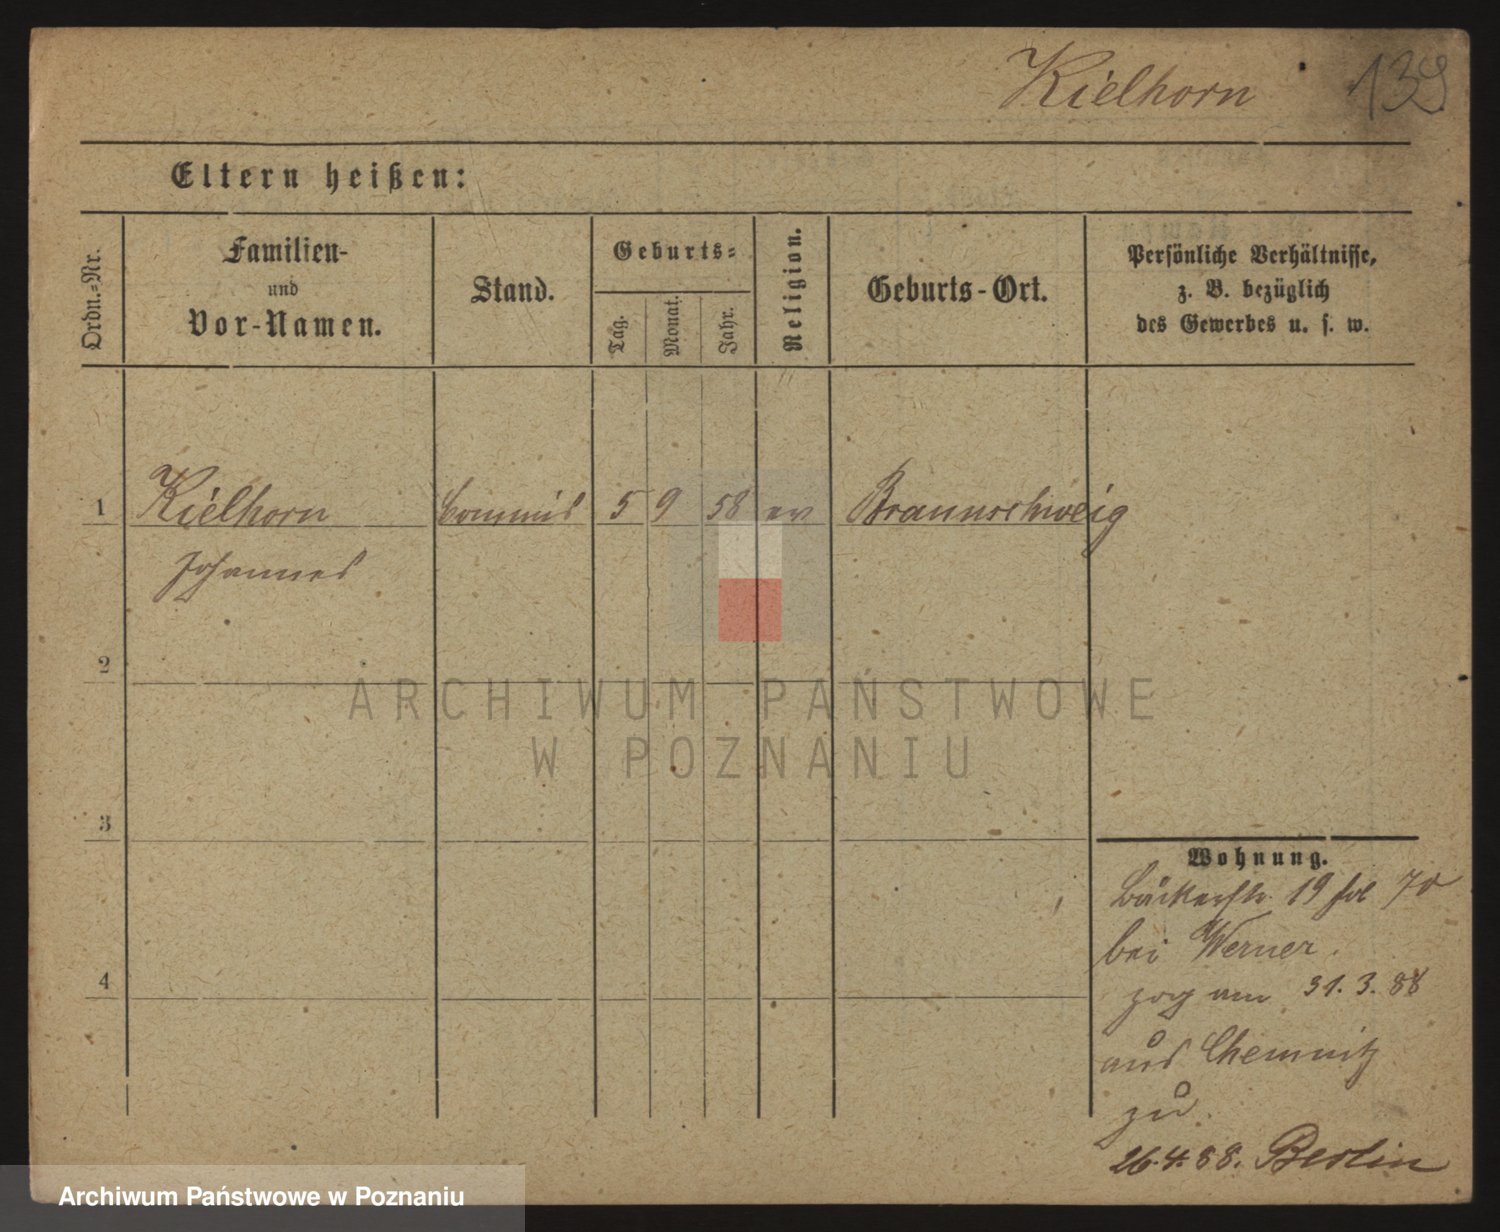 Kielhorn 139
Eltern heißen:
Ordn.-Nr.
Familien-
und
Vor-Namen.
Stand.
Geburts-
Tag.
Monat.
Jahr.
Religion.
Geburts-Ort.
Persönliche Verhältnisse,
z. B. bezüglich
des Gewerbes u. s. w.
1 Kielhorn Commis 5 9 58 ev Braunschweig
Johannes
2
3
4
ARCHIWUM PAŃSTWOWE
W POZNANIU
Wohnung.
Bäckerstr. 19 fol 70
bei Werner.
zog am 31.3.88
aus Chemnitz
zu.
26.4.88. Berlin
Archiwum Państwowe w Poznaniu